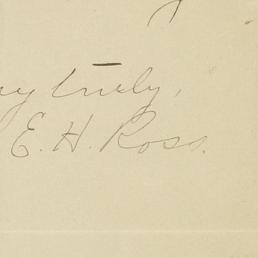 ry truly,
E. H. Ross.